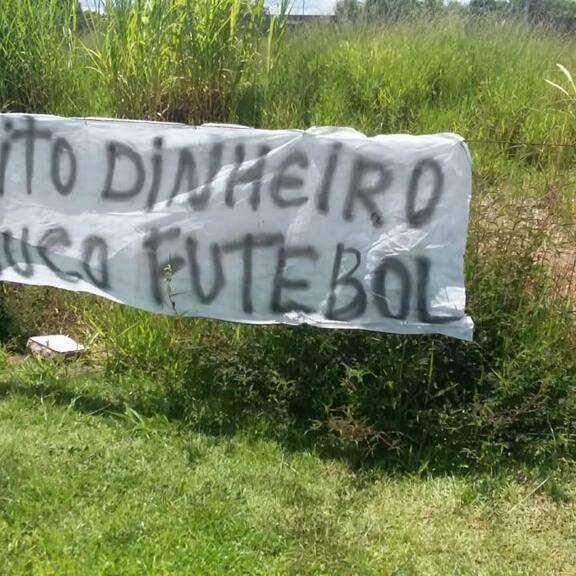 ITO DINHEIRO
UCO FUTEBOL